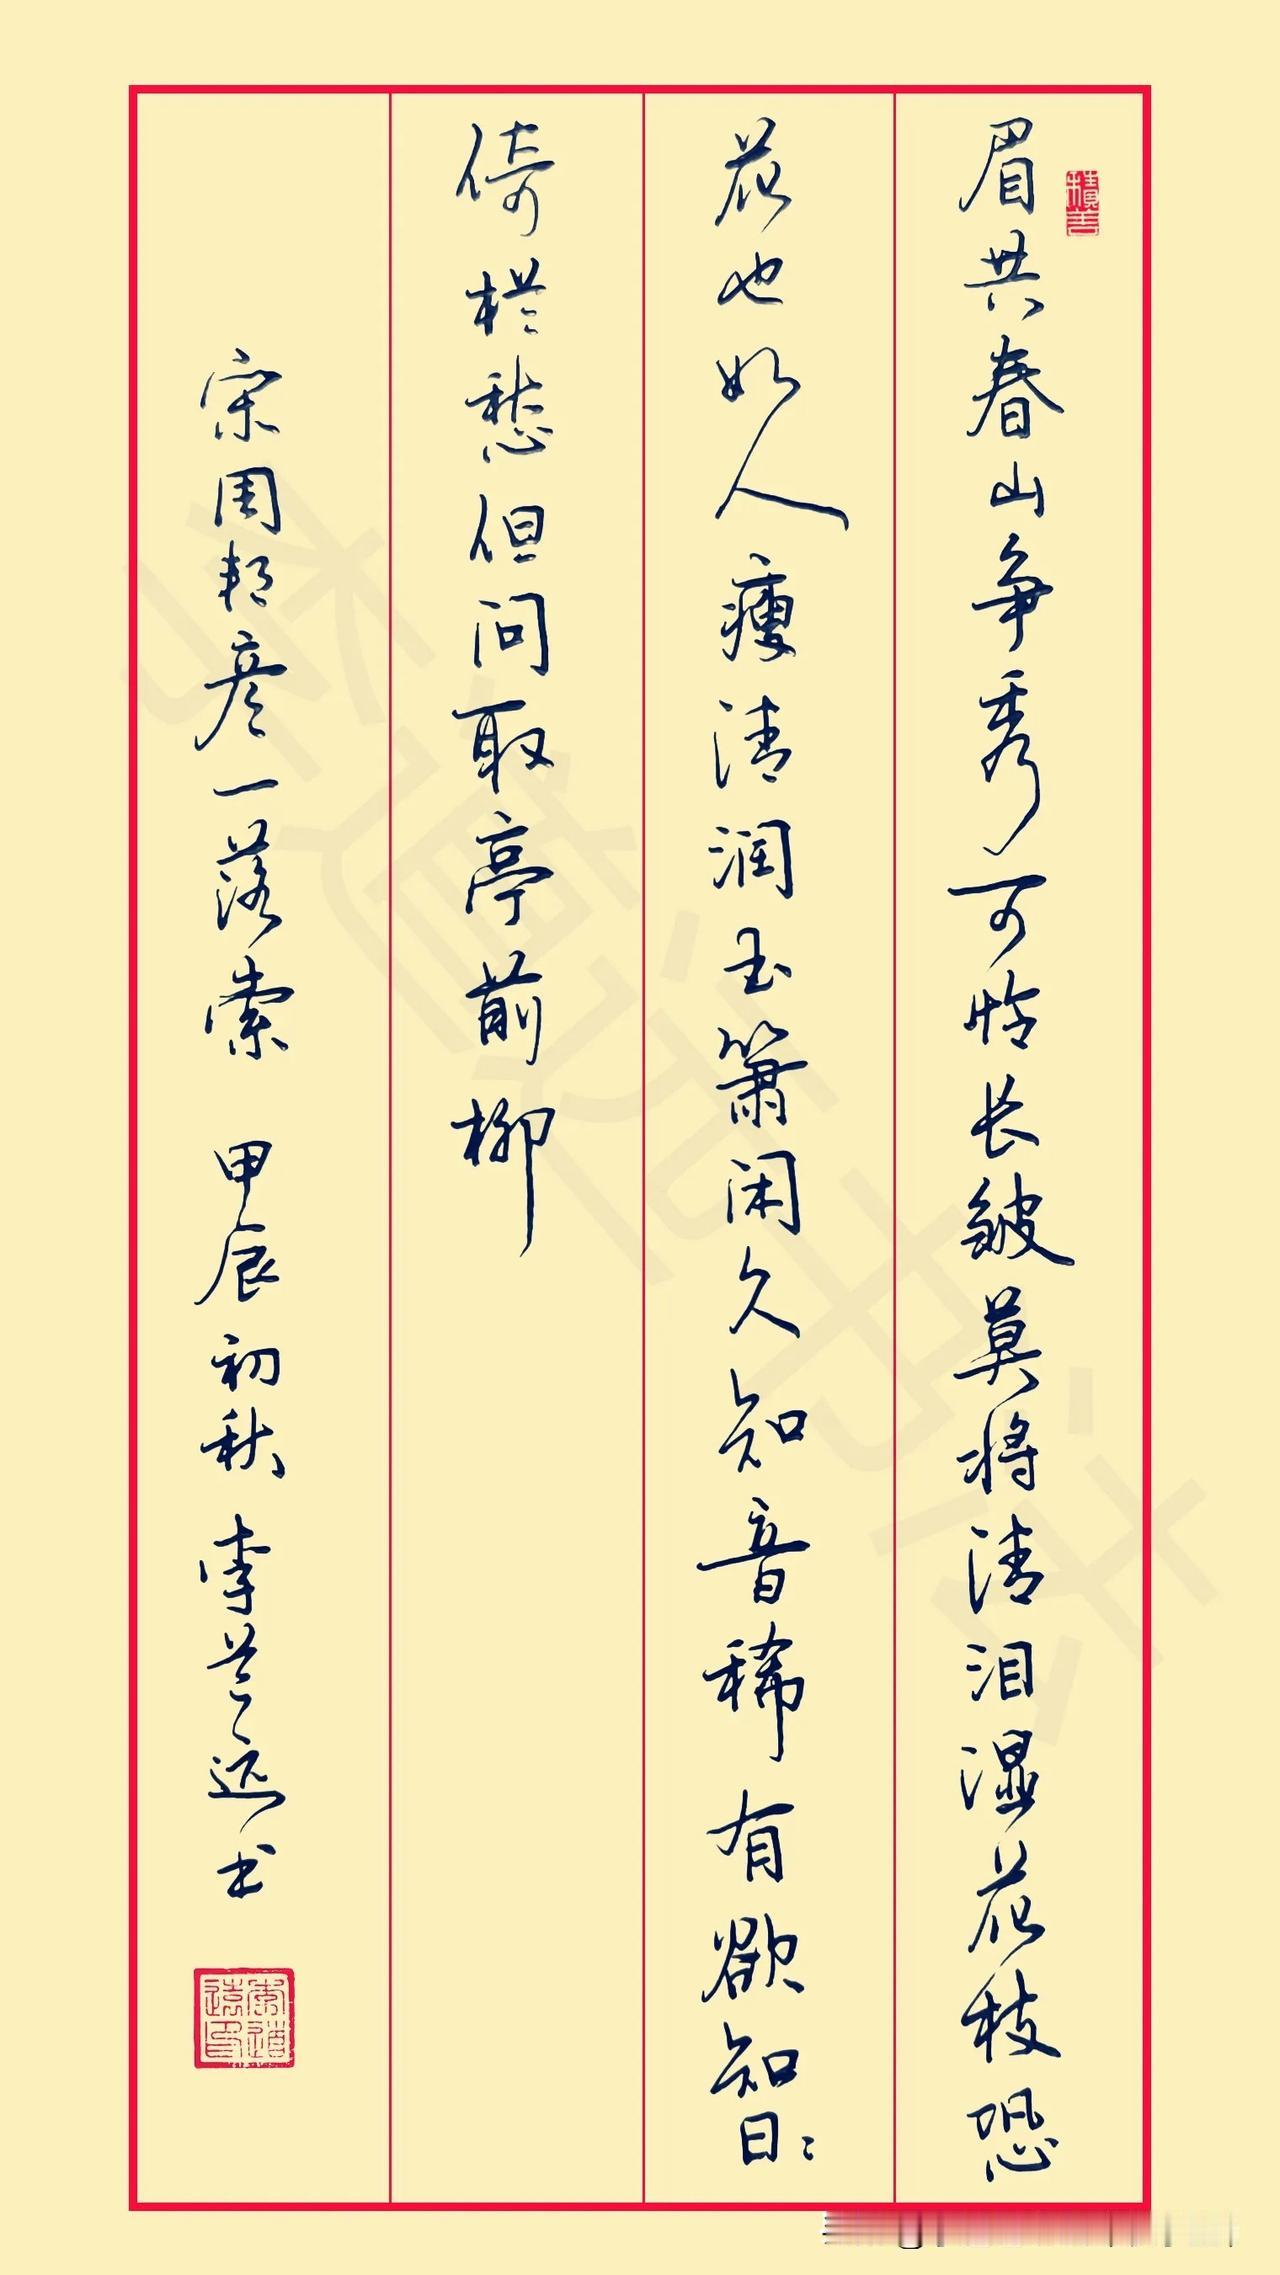 眉共春山争秀可怜长皱莫将清泪湿花枝恐
花也如人瘦清润玉箫闲久知音稀有欲知日々
倚栏愁但问取亭前柳
宋周邦彦一落索 甲辰初秋 李道远书
积善
李道远印
李道远书法